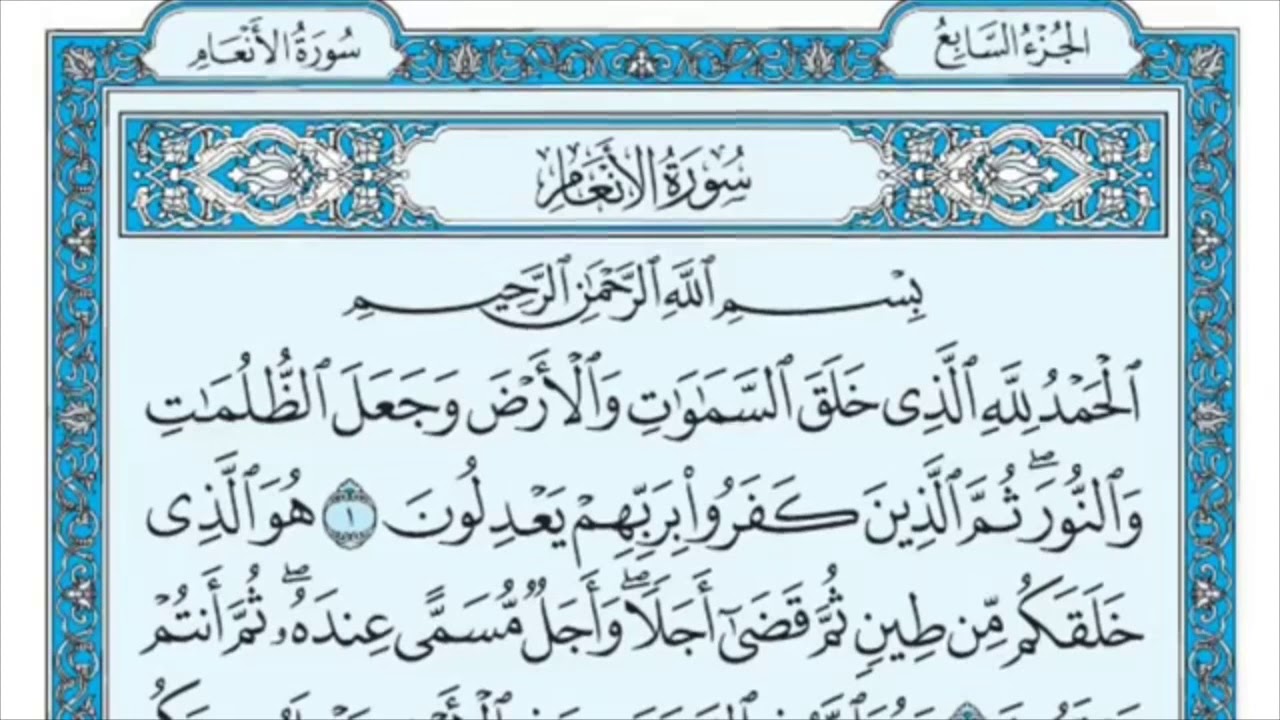 الجزء السابع
سورة الأنعام
سُورَةُ الأَنْعَامِ
بِسْمِ ٱللَّهِ ٱلرَّحْمَٰنِ ٱلرَّحِيمِ
ٱلْحَمْدُ لِلَّهِ ٱلَّذِى خَلَقَ ٱلسَّمَٰوَٰتِ وَٱلْأَرْضَ وَجَعَلَ ٱلظُّلُمَٰتِ
وَٱلنُّورَ ۖ ثُمَّ ٱلَّذِينَ كَفَرُوا۟ بِرَبِّهِمْ يَعْدِلُونَ ١ هُوَ ٱلَّذِى
خَلَقَكُم مِّن طِينٍ ثُمَّ قَضَىٰٓ أَجَلًا ۖ وَأَجَلٌ مُّسَمًّى عِندَهُۥ ۖ ثُمَّ أَنتُمْ